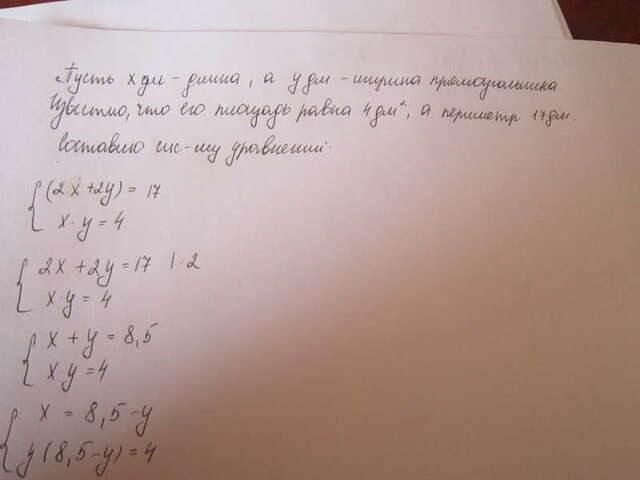 Пусть x дм - длина, а y дм - ширина прямоугольника.
Известно, что его площадь равна 4 дм², а периметр 17 дм.
Составлю сис-му уравнений.
{(2x+2y) = 17
x·y = 4
{2x+2y=17 | ·2
x·y = 4
{x + y = 8,5
x·y=4
{x = 8,5-y
y(8,5-y)=4